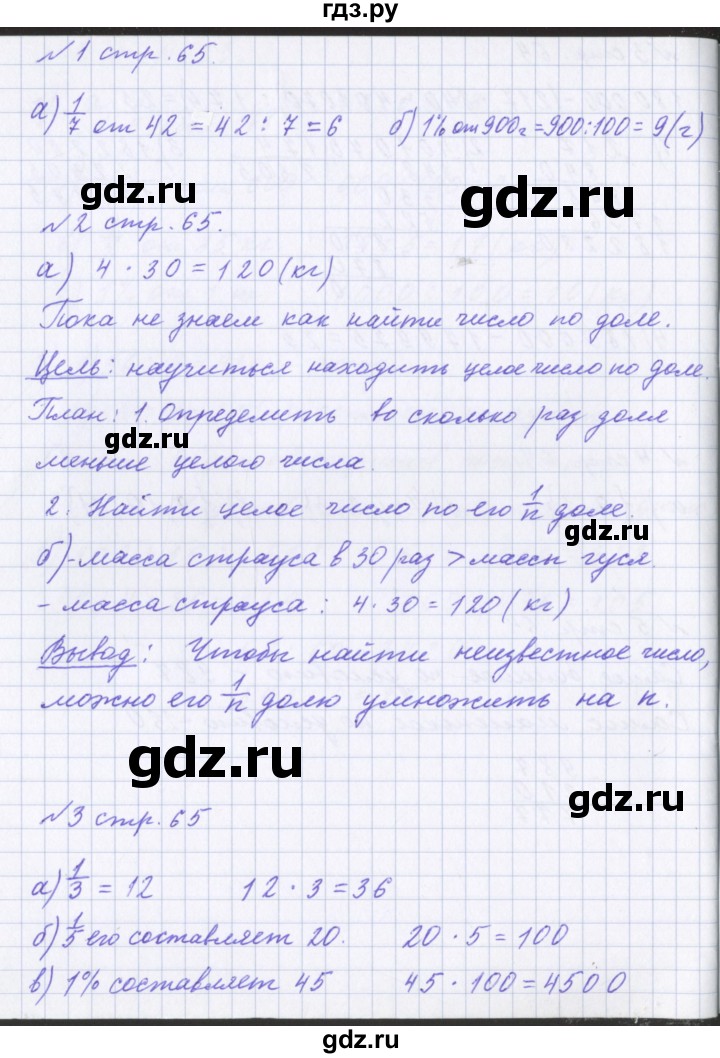 гдз.ру
№1 стр. 65.
а) 1/7 от 42 = 42 : 7 = 6 б) 1% от 900г = 900:100 = 9(г)
gdz.ru
gdz.ru
№2 стр. 65.
а) 4 · 30 = 120 (кг)
Пока не знаем как найти число по доле.
Цель: научиться находить целое число по доле.
План: 1. Определить во сколько раз доля
gdz.ru
меньше целого числа.
2. Найти целое число по его 1/n доле.
gdz.ru
б) - масса страуса в 30 раз > массы гуся.
- масса страуса : 4·30 = 120 (кг)
Вывод: Чтобы найти неизвестное число,
можно его 1/n долю умножить на n.
gdz.ru
gdz.ru
№3 стр. 65
а) 1/3 = 12 12 · 3 = 36
б) 1/5 его составляет 20. 20 · 5 = 100
в) 1% составляет 45 45 · 100 = 4500
gdz.ru